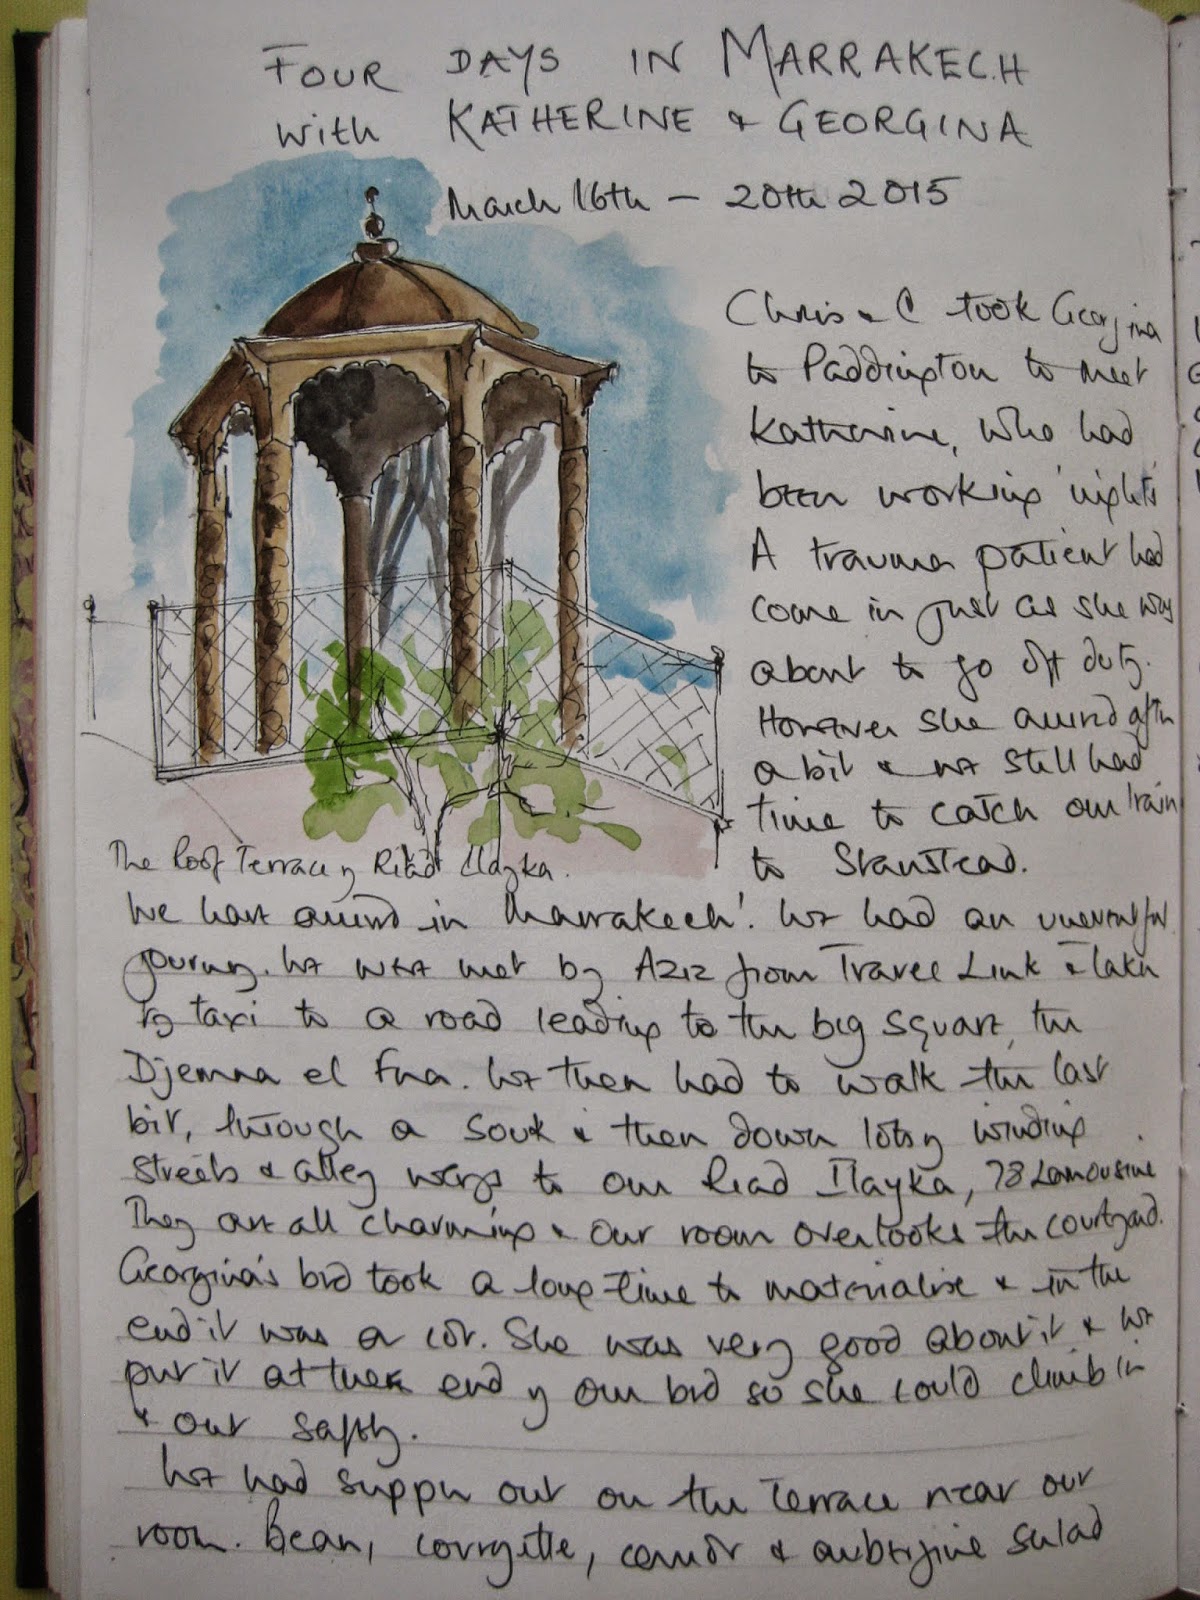 FOUR DAYS IN MARRAKECH
with KATHERINE & GEORGINA
March 16th – 20th 2015
Chris & I took Georgina
to Paddington to meet
Katherine, who had
been working 'nights'
A trauma patient had
come in just as she was
about to go off duty.
However she arrived after
a bit & we still had
time to catch our train
to Stanstead.
The Roof Terrace of Riad Ilayka.
We have arrived in Marrakech! We had an uneventful
journey. We were met by Aziz from Travel Link & taken
by taxi to a road leading to the big square, the
Djemna el Fna. We then had to walk the last
bit, through a souk & then down lots of winding
streets & alley ways to our Riad Ilayka, 78 Lamousine
They are all charming & our room overlooks the courtyard.
Georgina's bed took a long time to materialise & in the
end it was a cot. She was very good about it & we
put it at the end of our bed so she could climb in
& out safely.
We had supper out on the terrace near our
room. Bean, courgette, carrot & aubergine salad